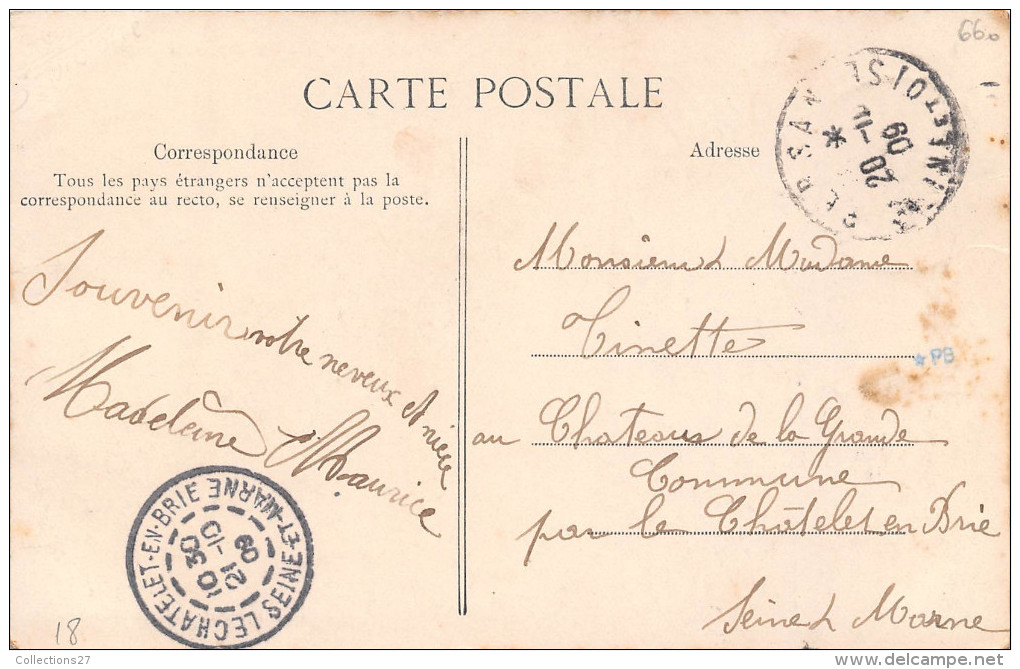 660
CARTE POSTALE
Correspondance
Tous les pays étrangers n'acceptent pas la
correspondance au recto, se renseigner à la poste.
Souvenir votre neveux et nièce
Madeleine Maurice
LE CHATELET-EN-BRIE SEINE-ET-MARNE
10 30
21
09
18
Adresse
PERSAN SEINE-ET-OISE
20
09
Monsieur & Madame
Tinette
★PB
au Chateaus de la Grande
Commune
par le Châtelet en Brie
Seine & Marne
Collections27